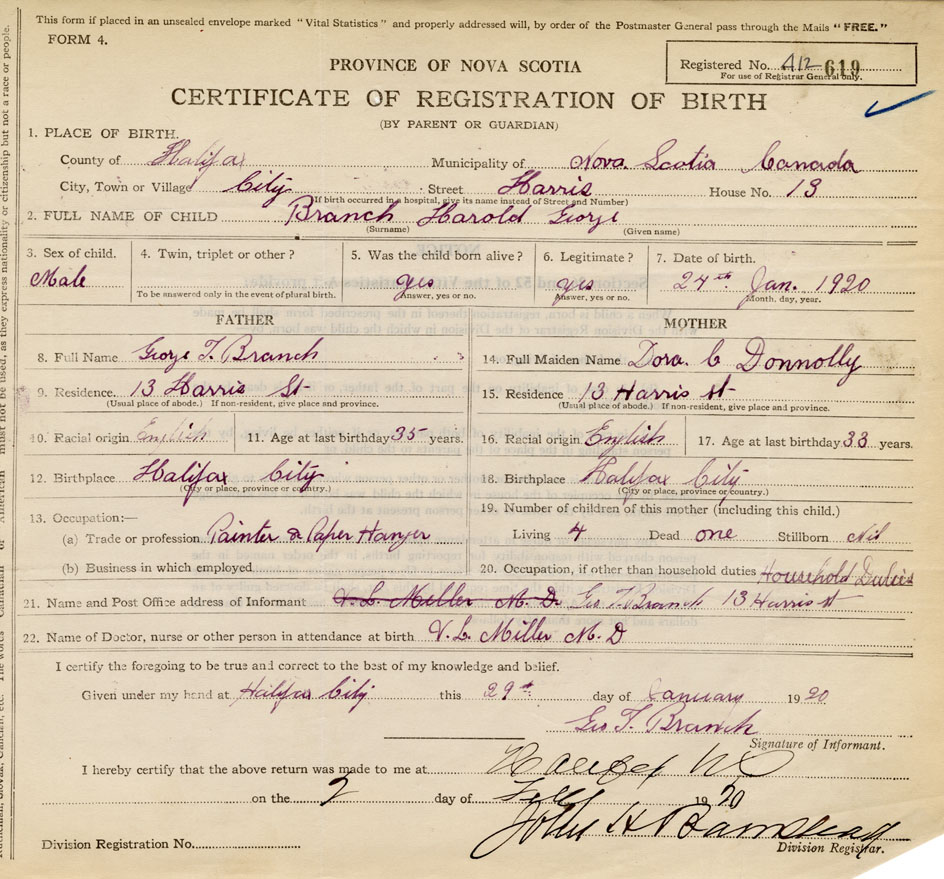 This form if placed in an unsealed envelope marked "Vital Statistics" and properly addressed will, by order of the Postmaster General pass through the Mails "FREE."
FORM 4.
Registered No. 412 619
For use of Registrar General only.
PROVINCE OF NOVA SCOTIA
CERTIFICATE OF REGISTRATION OF BIRTH
(BY PARENT OR GUARDIAN)
1. PLACE OF BIRTH.
County of Halifax Municipality of Nova Scotia Canada
City, Town or Village City Street Harris House No. 13
(If birth occurred in a hospital, give its name instead of Street and Number)
2. FULL NAME OF CHILD Branch Harold George
(Surname) (Given name)
3. Sex of child. 4. Twin, triplet or other? 5. Was the child born alive? 6. Legitimate? 7. Date of birth.
Male yes yes 24th Jan. 1920
To be answered only in the event of plural birth. Answer, yes or no. Answer, yes or no. Month, day, year.
FATHER
8. Full Name George T. Branch
9. Residence 13 Harris St
(Usual place of abode.) If non-resident, give place and province.
10. Racial origin English 11. Age at last birthday 35 years.
12. Birthplace Halifax City
(City or place, province or country.)
13. Occupation:—
(a) Trade or profession Painter & Paper Hanger
(b) Business in which employed
MOTHER
14. Full Maiden Name Dora. C Donnolly
15. Residence 13 Harris st
(Usual place of abode.) If non-resident, give place and province.
16. Racial origin English 17. Age at last birthday 33 years.
18. Birthplace Halifax City
(City or place, province or country.)
19. Number of children of this mother (including this child.)
Living 4 Dead one Stillborn Nil
20. Occupation, if other than household duties Household Duties
21. Name and Post Office address of Informant V. L. Miller M. D. Geo T. Branch 13 Harris st
22. Name of Doctor, nurse or other person in attendance at birth V. L. Miller M. D
I certify the foregoing to be true and correct to the best of my knowledge and belief.
Given under my hand at Halifax City this 29th day of January 1920
Geo T. Branch
Signature of Informant.
I hereby certify that the above return was made to me at Halifax NS
on the 2 day of 1920
John H Barnstead
Division Registration No. Division Registrar.